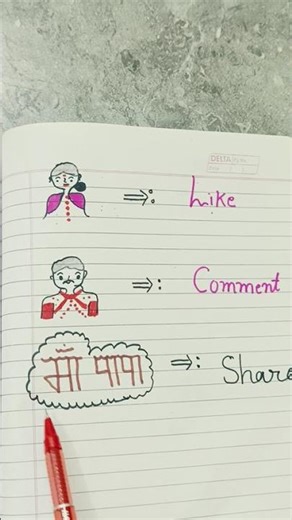 DELTA
⇒: Like
⇒: Comment
माँ पापा ⇒: Share